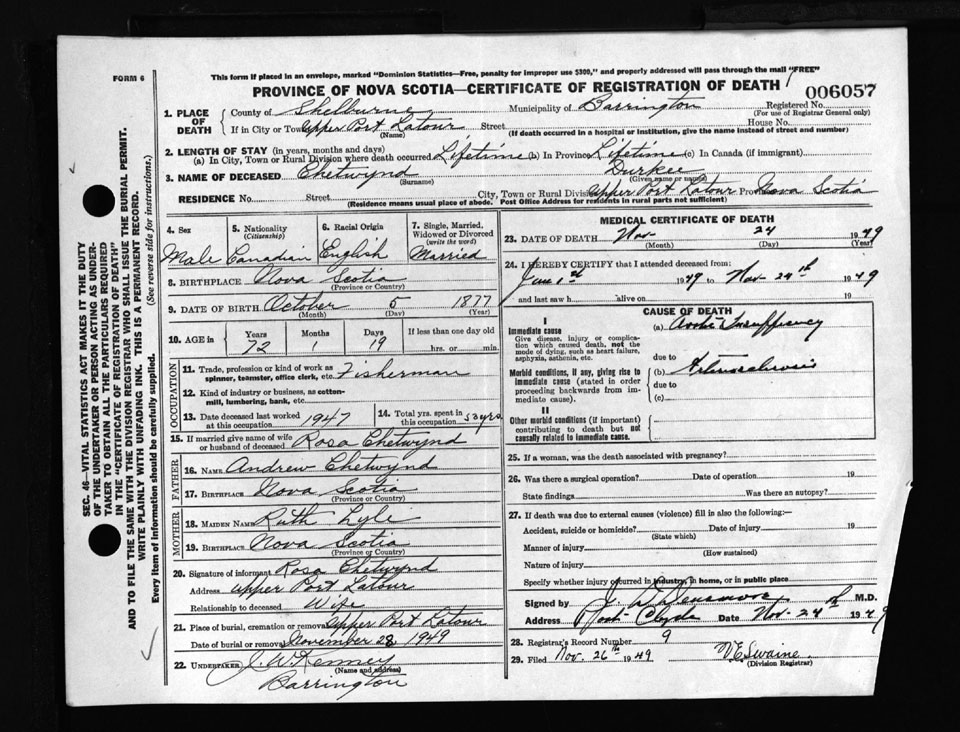 FORM 6
This form if placed in an envelope, marked "Dominion Statistics—Free, penalty for improper use $300," and properly addressed will pass through the mail "FREE"
PROVINCE OF NOVA SCOTIA—CERTIFICATE OF REGISTRATION OF DEATH
006057
1. PLACE OF DEATH
County of Shelburne Municipality of Barrington Registered No.
(For use of Registrar General only)
If in City or Town Upper Port Latour Street House No.
(Name) (If death occurred in a hospital or institution, give the name instead of street and number)
2. LENGTH OF STAY (in years, months and days)
(a) In City, Town or Rural Division where death occurred Lifetime (b) In Province Lifetime (c) In Canada (if immigrant)
3. NAME OF DECEASED Chetwynd Durkee
(Surname) (Given name or names)
RESIDENCE No. Street City, Town or Rural Division Upper Port Latour Province Nova Scotia
(Residence means usual place of abode. Post Office Address for residents in rural parts not sufficient)
4. Sex
Male
5. Nationality
(Citizenship)
Canadian
6. Racial Origin
English
7. Single, Married, Widowed or Divorced
(write the word)
Married
8. BIRTHPLACE Nova Scotia
(Province or Country)
9. DATE OF BIRTH October 5 1877
(Month) (Day) (Year)
10. AGE in
Years Months Days If less than one day old
72 1 19 hrs. or min.
OCCUPATION
11. Trade, profession or kind of work as spinner, teamster, office clerk, etc. Fisherman
12. Kind of industry or business, as cotton-mill, lumbering, bank, etc.
13. Date deceased last worked at this occupation 1947
14. Total yrs. spent in this occupation 53 yrs.
15. If married give name of wife or husband of deceased Rosa Chetwynd
FATHER
16. NAME Andrew Chetwynd
17. BIRTHPLACE Nova Scotia
(Province or Country)
MOTHER
18. MAIDEN NAME Ruth Lyle
19. BIRTHPLACE Nova Scotia
(Province or Country)
20. Signature of informant Rosa Chetwynd
Address Upper Port Latour
Relationship to deceased Wife
21. Place of burial, cremation or removal Upper Port Latour
Date of burial or removal November 28 1949
22. UNDERTAKER J. W. Kenney
(Name and address)
Barrington
MEDICAL CERTIFICATE OF DEATH
23. DATE OF DEATH Nov 24 1949
(Month) (Day) (Year)
24. I HEREBY CERTIFY that I attended deceased from:
June 1st 1949 to Nov-24th 1949
and last saw h alive on 19
CAUSE OF DEATH
I
Immediate cause
Give disease, injury or complication which caused death, not the mode of dying, such as heart failure, asphyxia, asthenia, etc.
(a) Aortic Insufficiency
due to
Morbid conditions, if any, giving rise to immediate cause (stated in order proceeding backwards from immediate cause).
(b) Arteriosclerosis
due to
(c)
II
Other morbid conditions (if important) contributing to death but not causally related to immediate cause.
25. If a woman, was the death associated with pregnancy?
26. Was there a surgical operation? Date of operation 19
State findings Was there an autopsy?
27. If death was due to external causes (violence) fill in also the following:
Accident, suicide or homicide? Date of injury 19
(State which)
Manner of injury
(How sustained)
Nature of injury
Specify whether injury occurred in industry, in home, or in public place
Signed by M.D.
Address Port Clyde Date Nov-24th 1949
28. Registrar's Record Number 9
29. Filed Nov. 26th 1949 Swaine
(Division Registrar)
SEC. 46—VITAL STATISTICS ACT MAKES IT THE DUTY
OF THE UNDERTAKER OR PERSON ACTING AS UNDER-
TAKER TO OBTAIN ALL THE PARTICULARS REQUIRED
IN THE "CERTIFICATE OF REGISTRATION OF DEATH"
AND TO FILE THE SAME WITH THE DIVISION REGISTRAR WHO SHALL ISSUE THE BURIAL PERMIT.
WRITE PLAINLY WITH UNFADING INK. THIS IS A PERMANENT RECORD.
Every item of information should be carefully supplied. (See reverse side for instructions.)